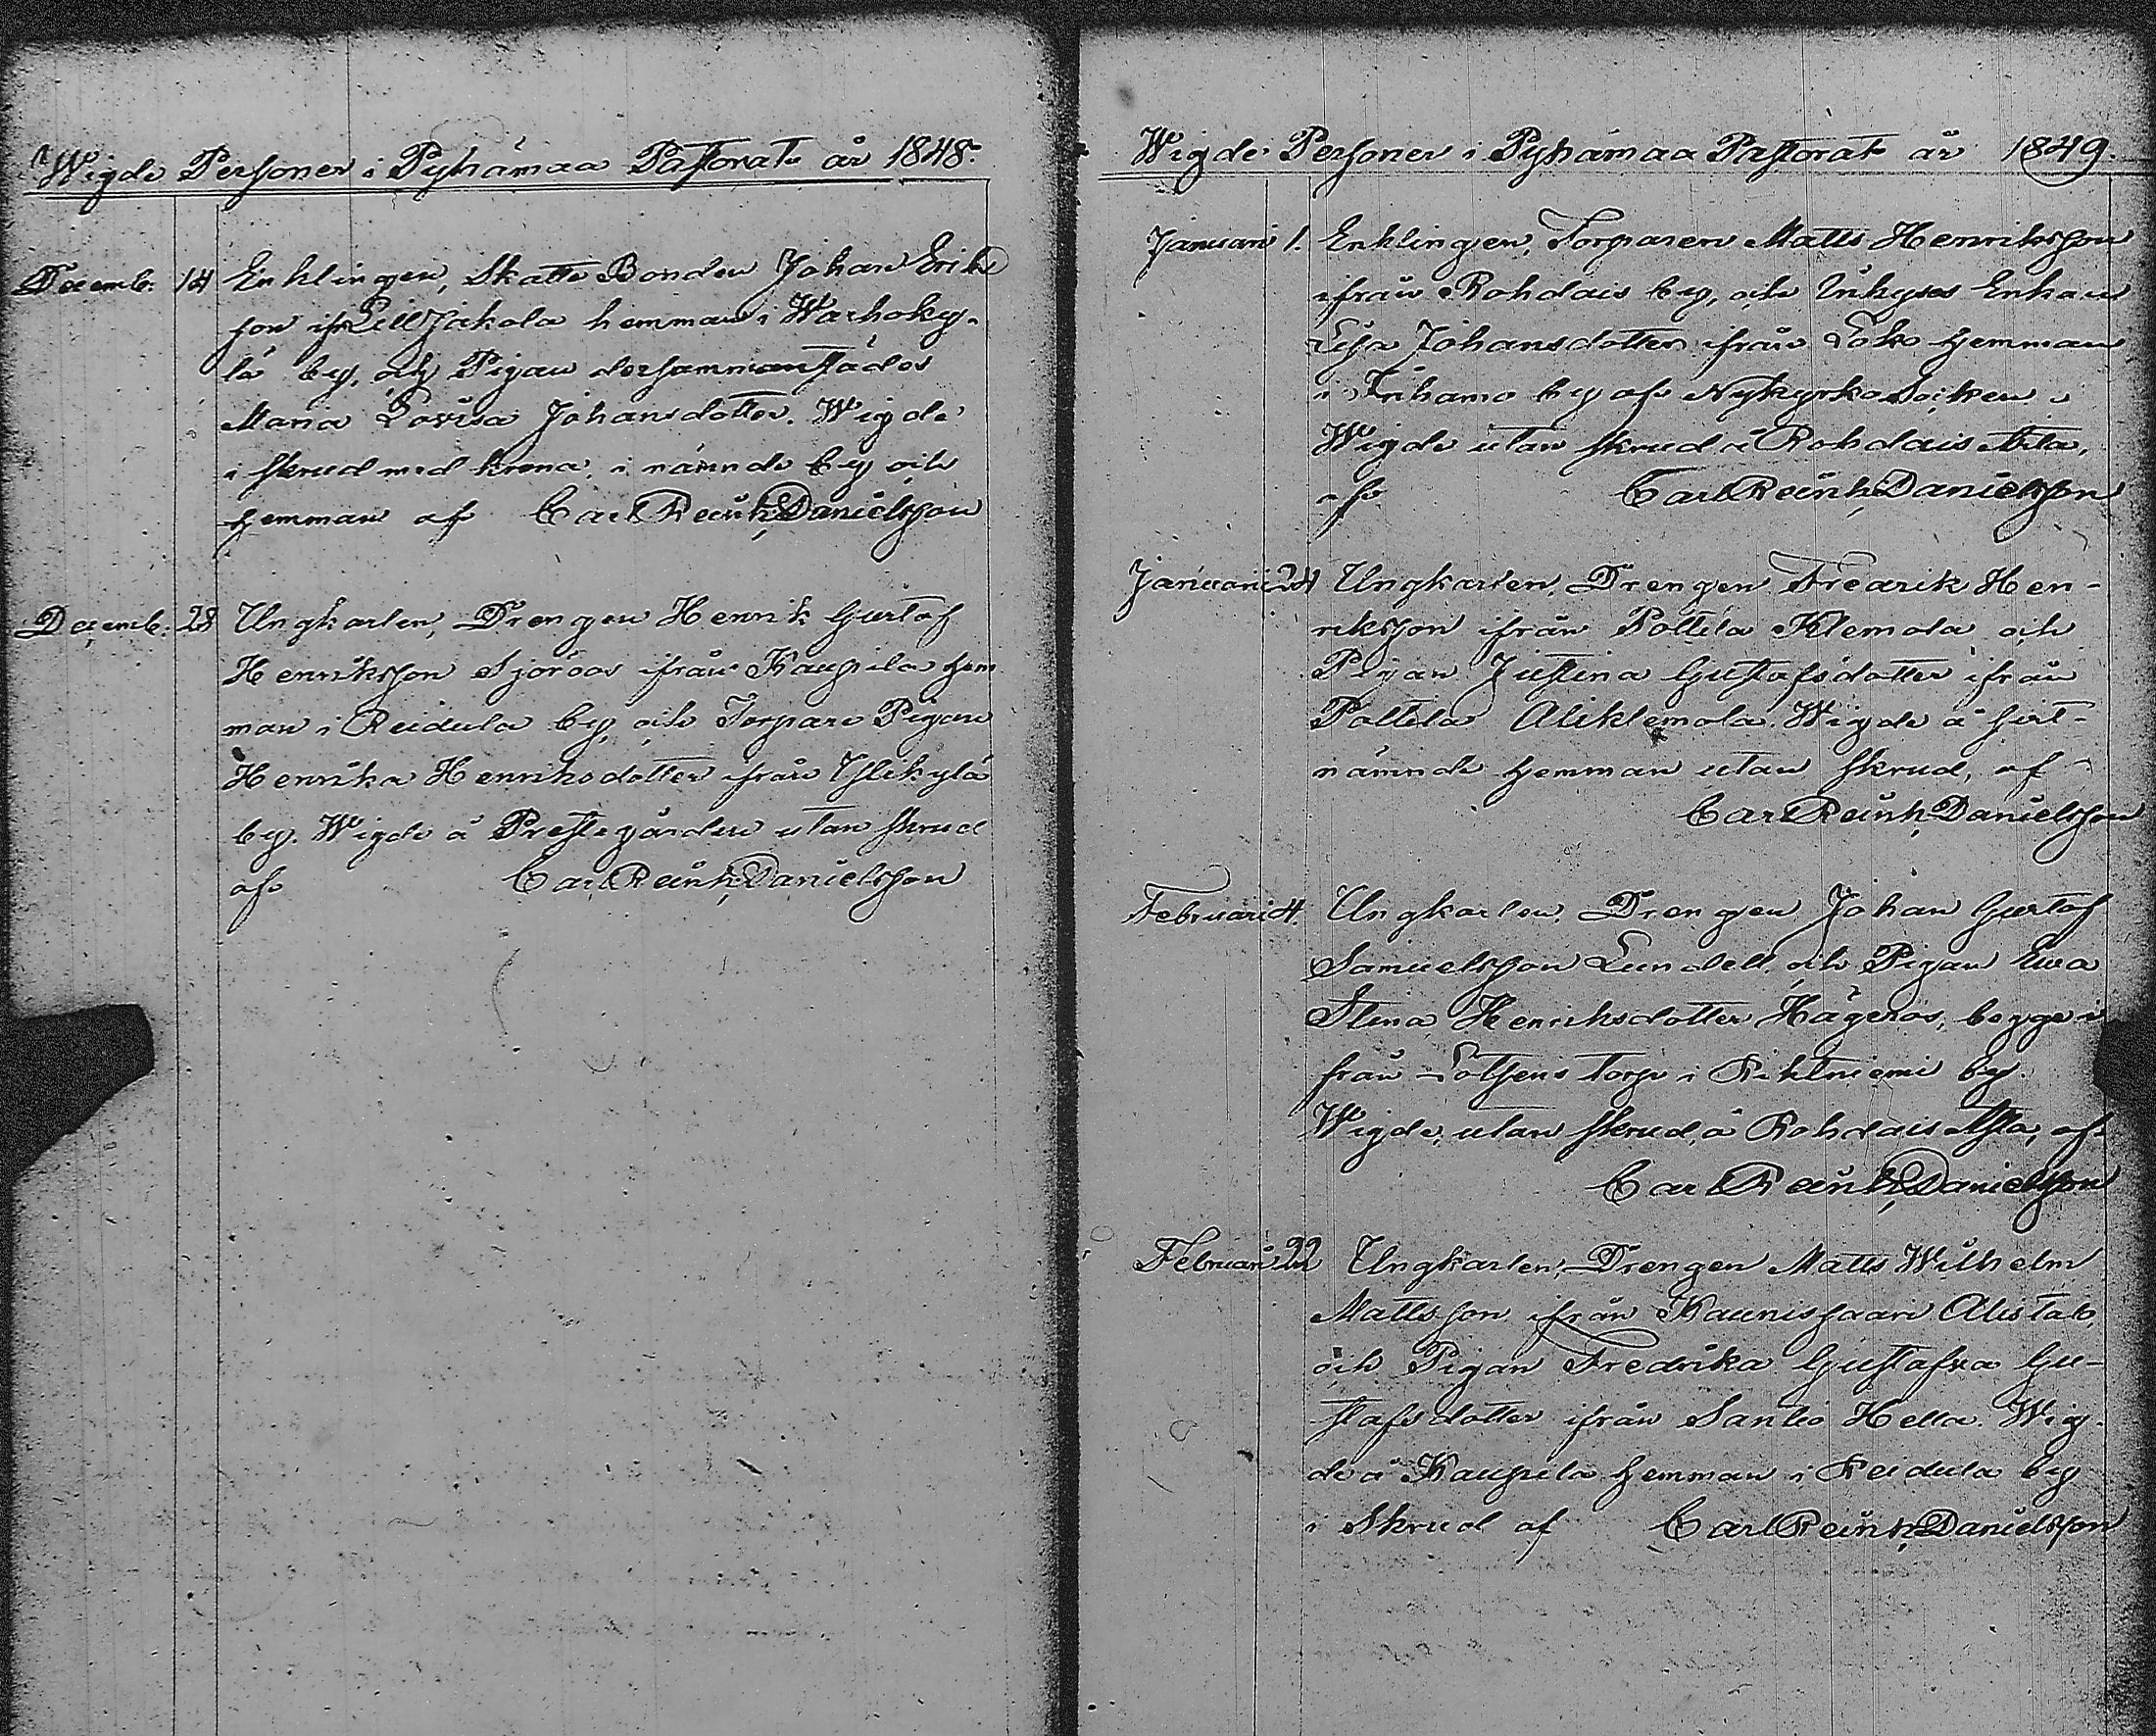 Wigde Personer i Pyhämaa Pastorat år 1848.
Decemb. 14 Enklingen, Skatte Bonden Johan Eriks
son ifr Lill Jakola hemman i Warhoky-
lä by, och Pigan dersammanstädes
Maria Lovisa Johansdotter. Wigde
i skrud med krona, i nämnde by och
hemman af Carl Reinh. Danielsson
Decemb. 28 Ungkarlen, Drengen Henrik Gustaf
Henriksson Sjöroos ifrån Kaupila hem
man i Reidula by, och Torpare Pigan
Henrika Henriksdotter ifrån Ylikylä
by. Wigde å Prestegården utan skrud
af Carl Reinh. Danielsson
Wigde Personer i Pyhämaa Pastorat år 1849.
Januari 1. Enklingen, Torparen Matts Henriksson
ifrån Rohdais by, och Enkan
Lisa Johansdotter ifrån Löko hemman
i by af Nykyrko Socken
Wigde utan skrud å Rohdais
af Carl Reinh. Danielsson
Januari 24 Ungkarlen, Drengen Fredrik Hen-
riksson ifrån Polttila Klemola och
Pigan Justina Gustafsdotter ifrån
Polttila Aliklemola. Wigde å sist-
nämnde hemman utan skrud, af
Carl Reinh. Danielsson
Februari 4. Ungkarlen, Drengen Johan Gustaf
Samuelsson Lundell, och Pigan Ewa
Stina Henriksdotter Hägeros, begge i
från Lotsens torp i Rihtniemi by.
Wigde, utan skrud, å Rohdais af
Carl Reinh. Danielsson
Februari 22 Ungkarlen, Drengen Matts Wilhelm
Mattsson ifrån Kaunissaari Alistalo,
och Pigan Fredrika Gustafva Gu-
stafsdotter ifrån Santio Hella. Wig-
de å Kaupila hemman i Reidula by
i Skrud af Carl Reinh. Danielsson